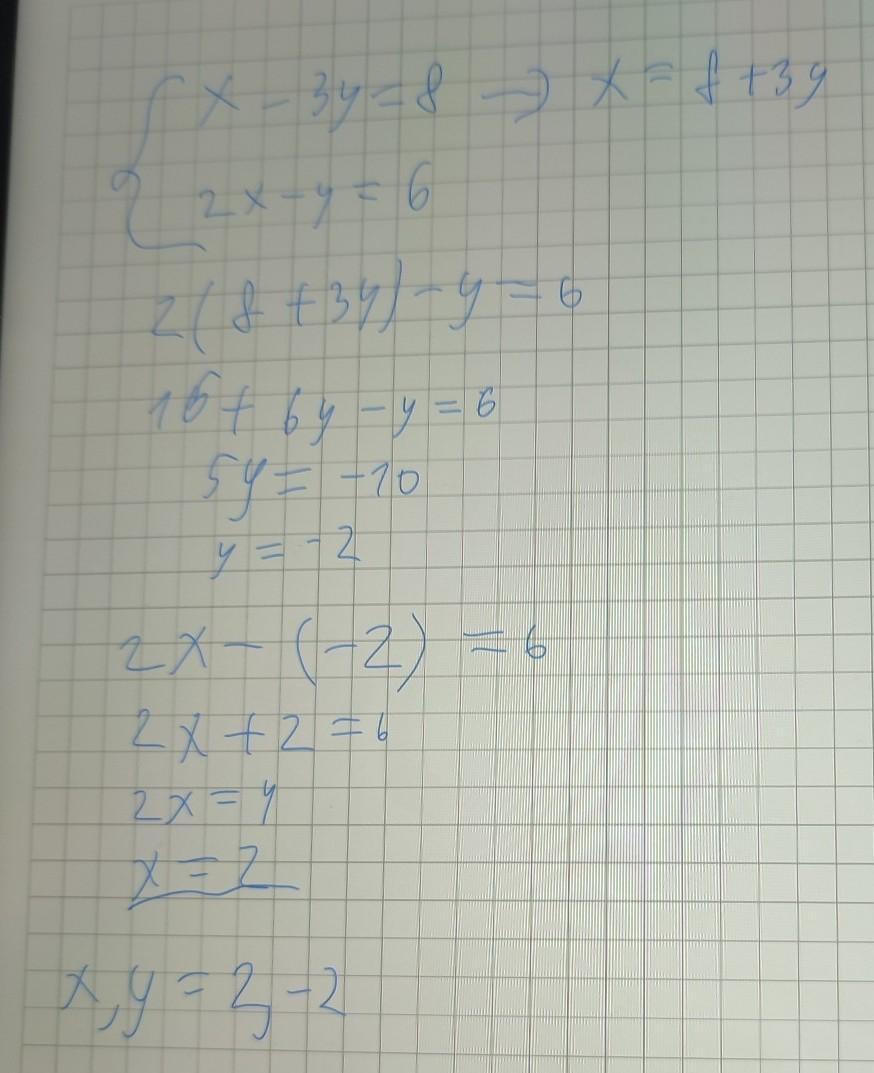 x - 3y = 8 → x = 8 + 3y
2x - y = 6
2(8 + 3y) - y = 6
16 + 6y - y = 6
5y = -10
y = -2
2x - (-2) = 6
2x + 2 = 6
2x = 4
x = 2
x, y = 2, -2